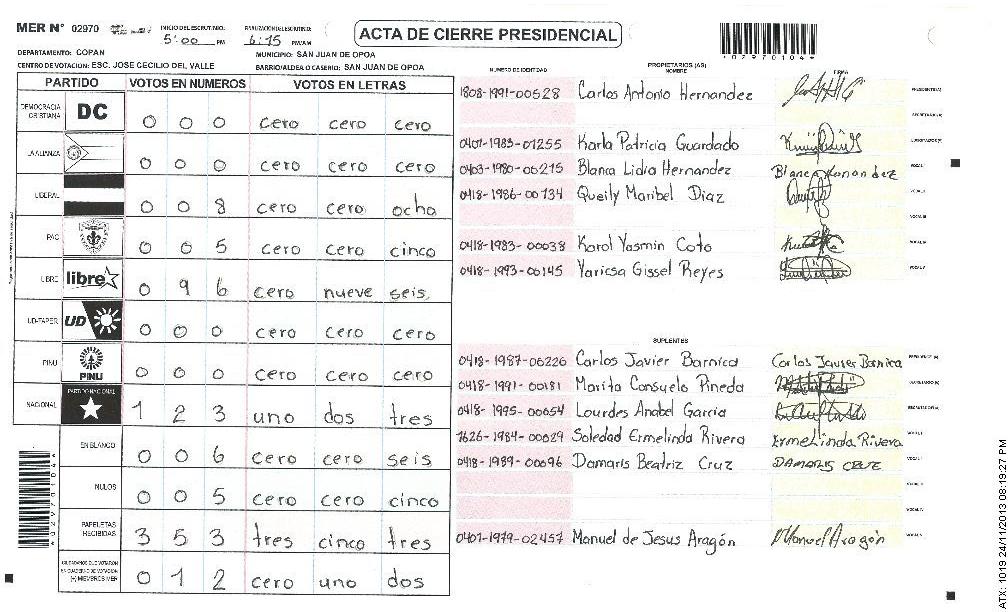 MER N° 02970
INICIO DEL ESCRUTINIO: 5:00 PM
FINALIZACION DEL ESCRUTINIO: 6:15 PM/AM
ACTA DE CIERRE PRESIDENCIAL
*02970104*
DEPARTAMENTO: COPAN
MUNICIPIO: SAN JUAN DE OPOA
CENTRO DE VOTACION: ESC. JOSE CECILIO DEL VALLE
BARRIO/ALDEA O CASERIO: SAN JUAN DE OPOA
PARTIDO VOTOS EN NUMEROS VOTOS EN LETRAS
DEMOCRACIA CRISTIANA DC 0 0 0 cero cero cero
LA ALIANZA 0 0 0 cero cero cero
LIBERAL 0 0 8 cero cero ocho
PAC 0 0 5 cero cero cinco
LIBRE libre 0 9 6 cero nueve seis
UD-FAPER UD 0 0 0 cero cero cero
PINU PINU 0 0 0 cero cero cero
NACIONAL PARTIDO NACIONAL 1 2 3 uno dos tres
EN BLANCO 0 0 6 cero cero seis
NULOS 0 0 5 cero cero cinco
PAPELETAS RECIBIDAS 3 5 3 tres cinco tres
CIUDADANOS QUE VOTARON EN CUADERNO DE VOTACION (+) MIEMBROS MER 0 1 2 cero uno dos
NUMERO DE IDENTIDAD PROPIETARIOS (AS) NOMBRE FIRMA
1808-1991-00528 Carlos Antonio Hernandez PRESIDENTE(A)
SECRETARIO(A)
0401-1983-01255 Karla Patricia Guardado ESCRUTADOR(A)
0403-1980-00215 Blanca Lidia Hernandez VOCAL I
0418-1986-00134 Queily Maribel Diaz VOCAL II
VOCAL III
0418-1983-00038 Karol Yasmin Coto VOCAL IV
0418-1993-00145 Yaricsa Gissel Reyes VOCAL V
SUPLENTES
0418-1987-00226 Carlos Javier Barnica Carlos Javier Barnica PRESIDENTE(A)
0418-1991-00181 Marita Consuelo Pineda SECRETARIO(A)
0418-1995-00654 Lourdes Anabel Garcia ESCRUTADOR(A)
1626-1984-00029 Soledad Ermelinda Rivera Ermelinda Rivera VOCAL I
0418-1989-00096 Damaris Beatriz Cruz DAMARIS CRUZ VOCAL II
VOCAL III
VOCAL IV
0401-1979-02457 Manuel de Jesus Aragón Manuel Aragón VOCAL V
ATX: 1019 24/11/2013 08:19:27 PM